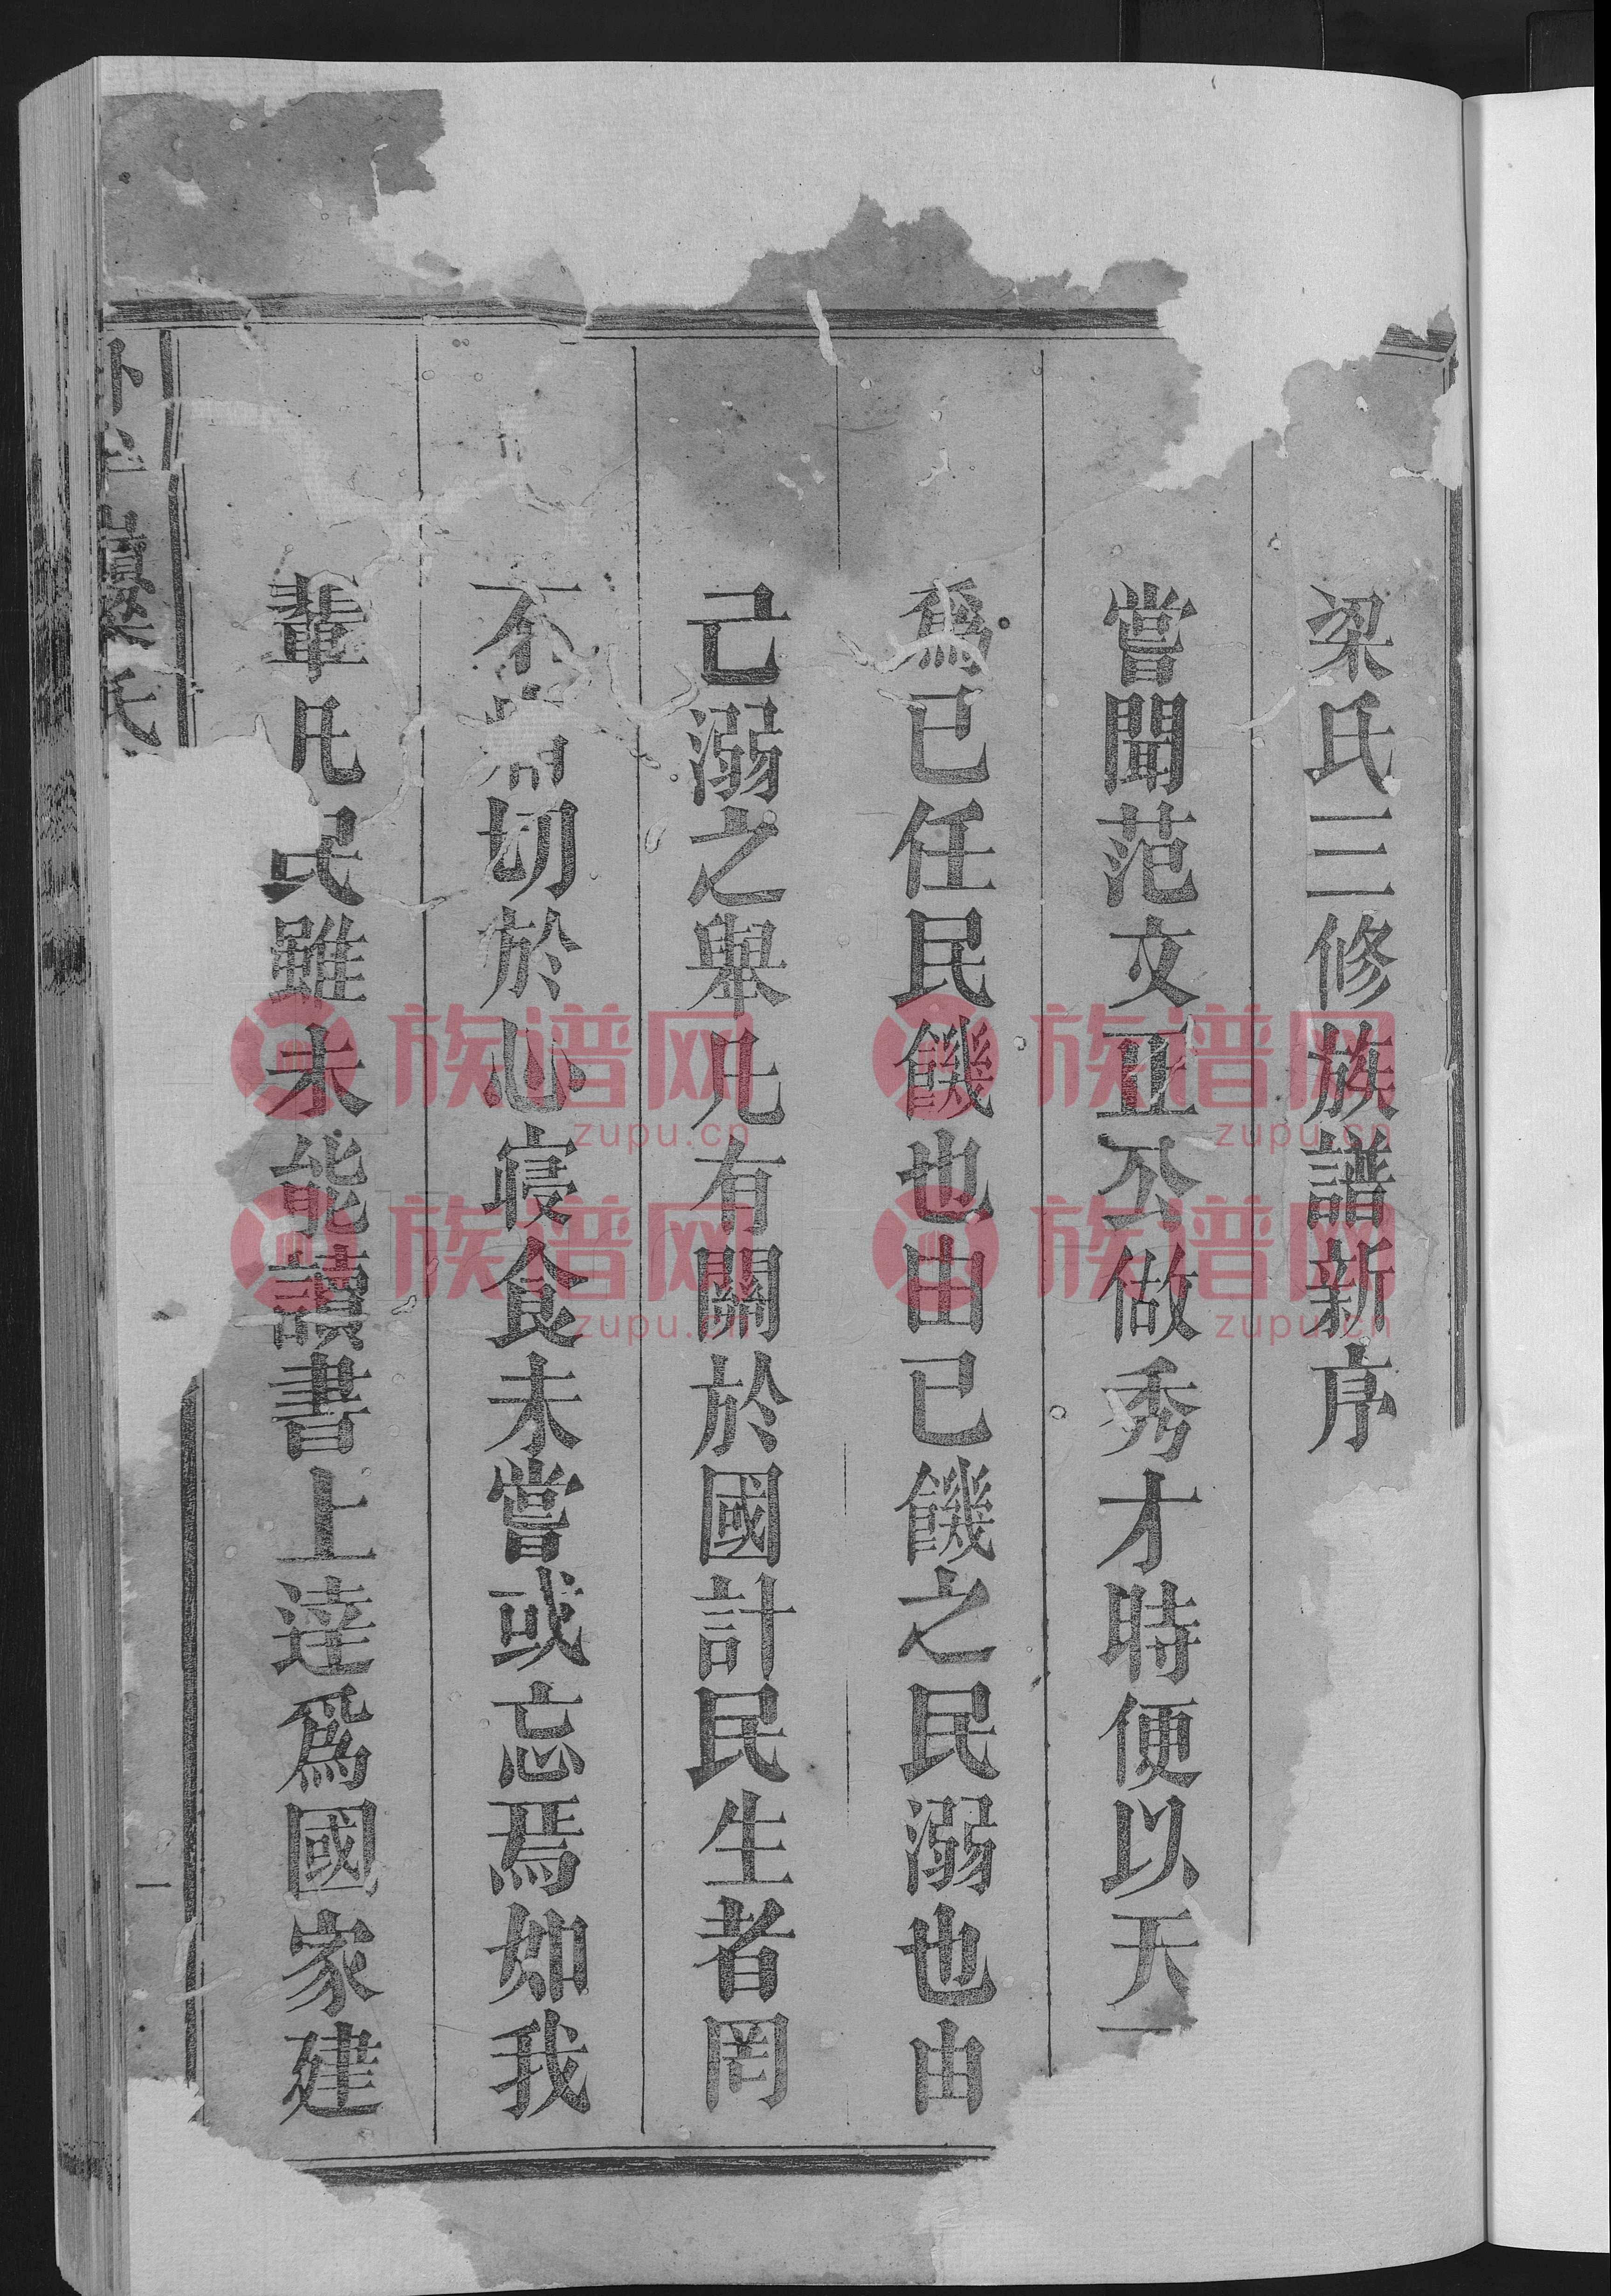 梁氏三修族譜新序
嘗聞范文正公做秀才時便以天
爲已任民饑也由已饑之民溺也由
己溺之舉凡有關於國計民生者罔
不 切於心寢食未嘗或忘焉如我
輩凡民雖未能讀書上達爲國家建
氏
一
族谱网
zupu.cn
族谱网
zupu.cn
族谱网
zupu.cn
族谱网
zupu.cn